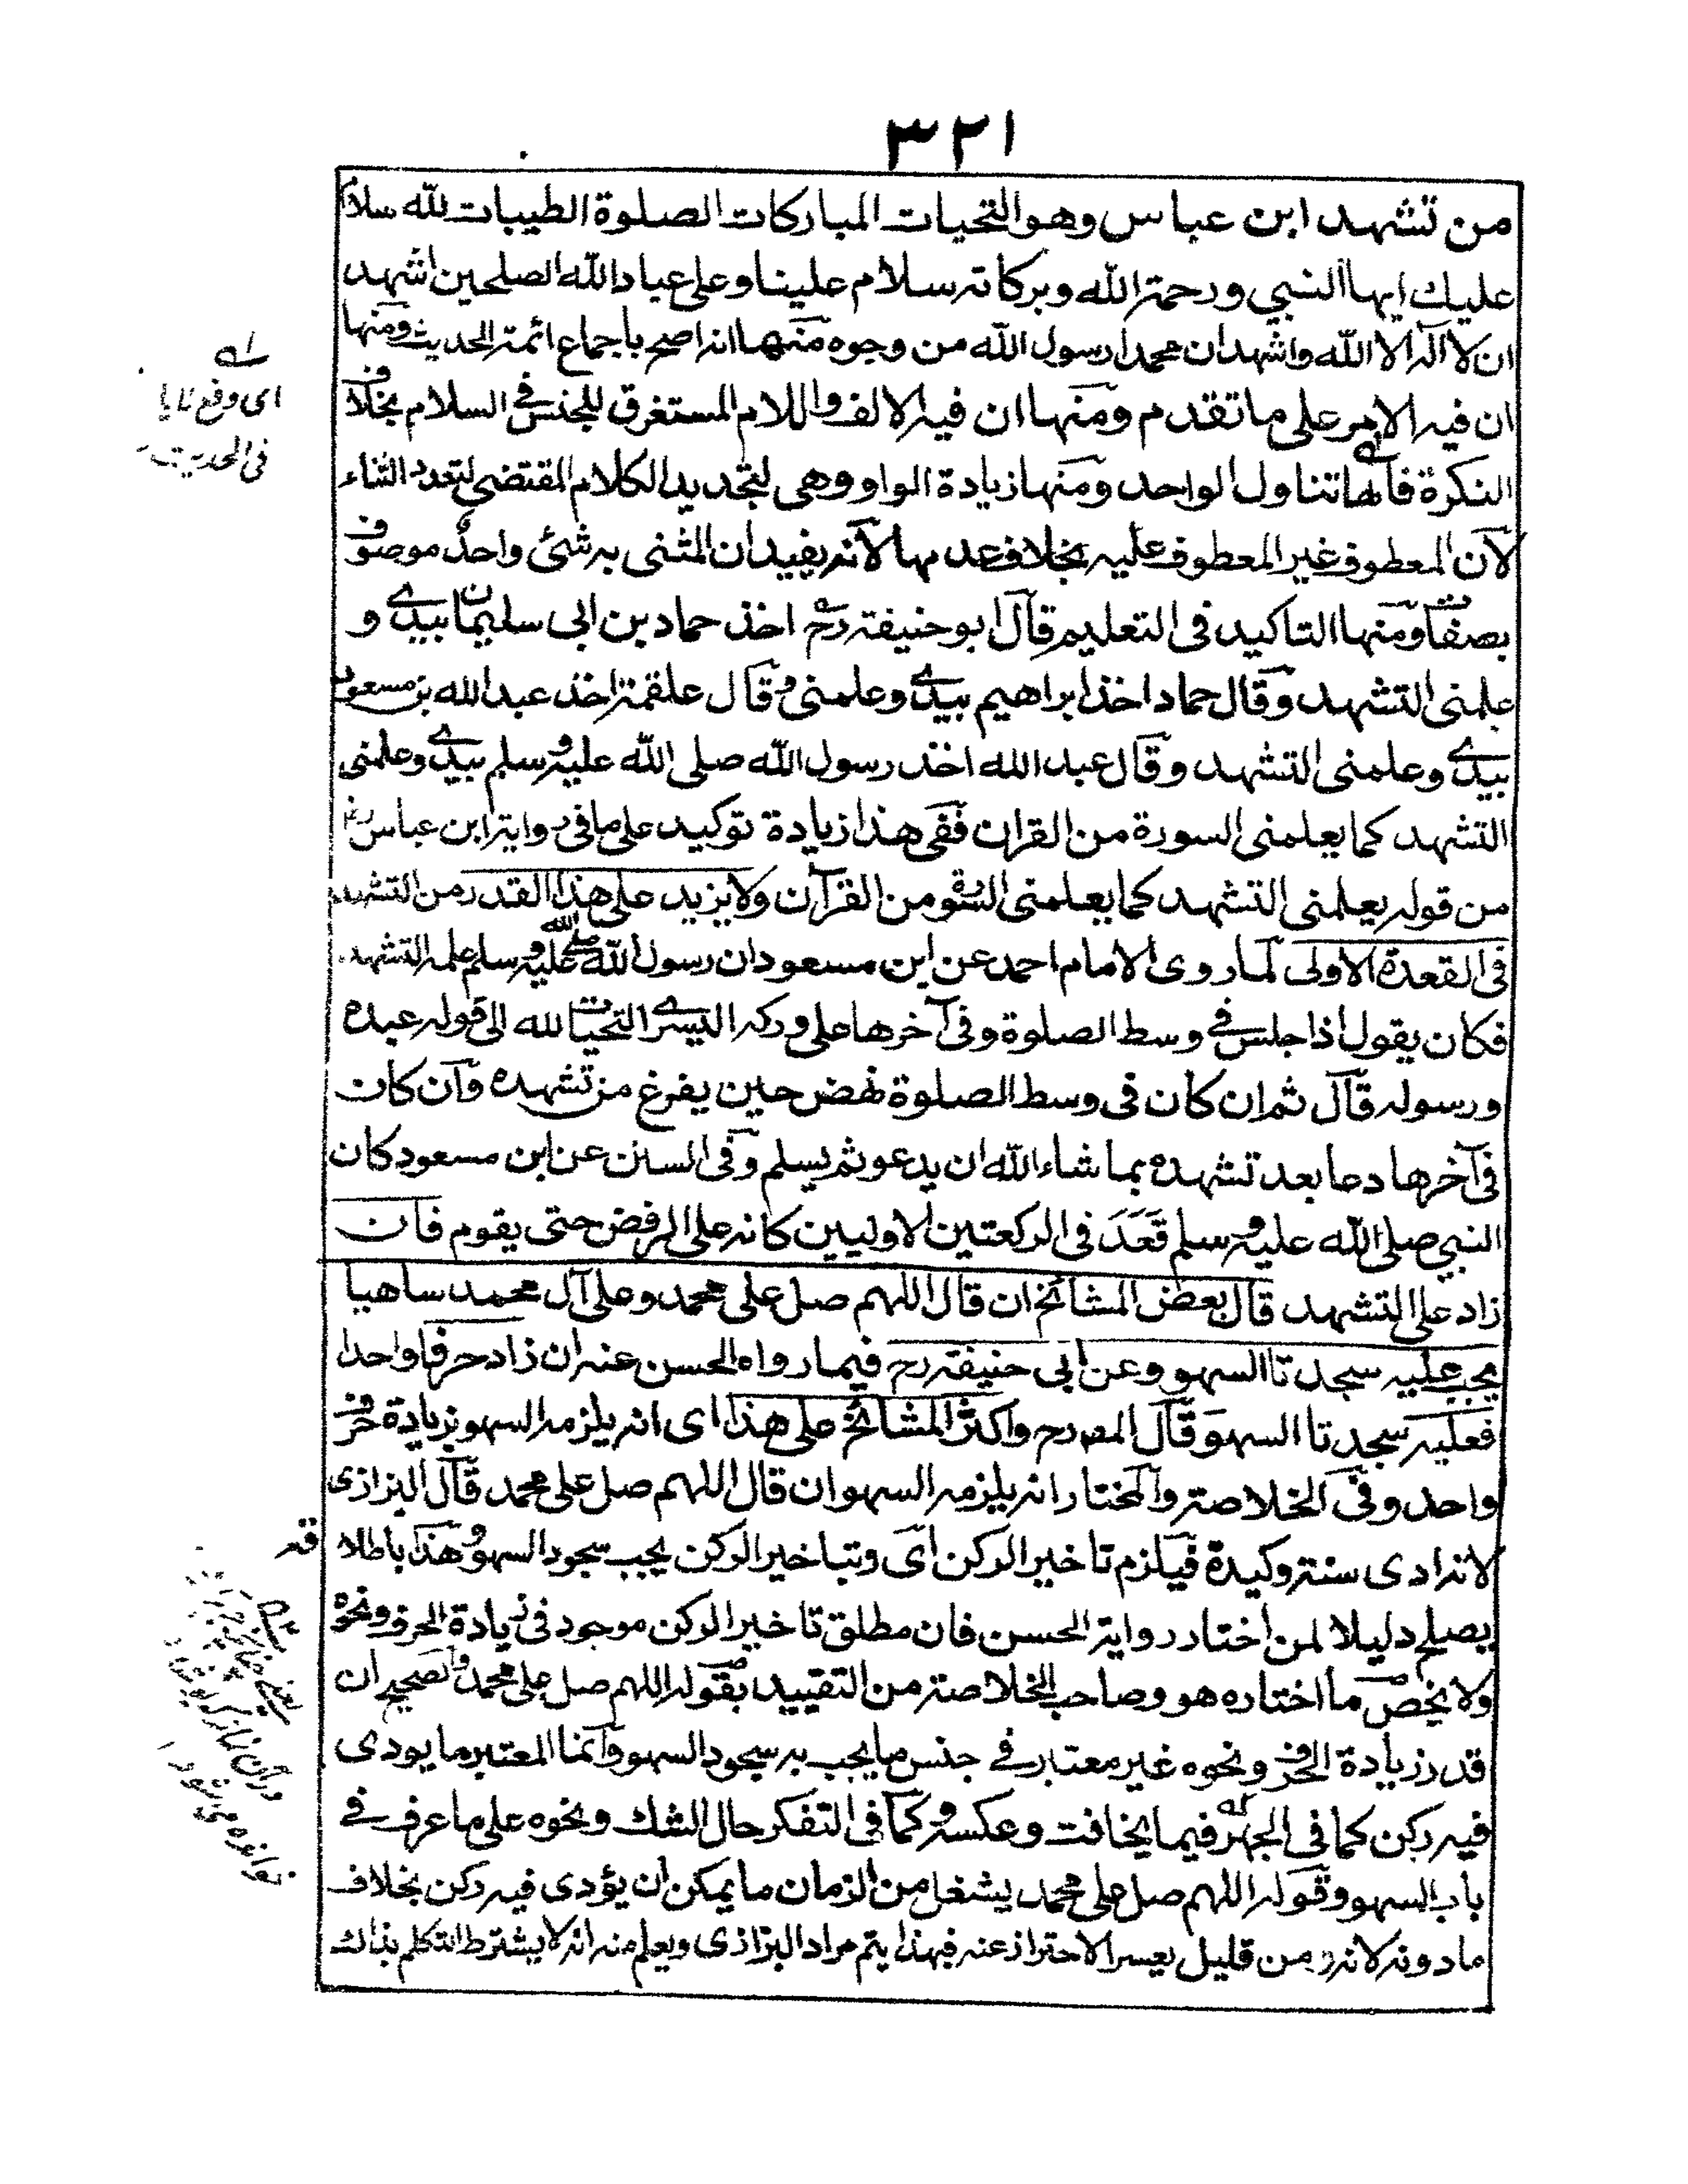 ٣٢١
من تشهد ابن عباس وهو التحيات المباركات الصلوة الطيبات لله سلام
عليك ايها النبي ورحمة الله وبركاته سلام علينا وعلى عباد الله الصلحين اشهد
ان لا اله الا الله واشهد ان محمدا رسول الله من وجوه منها انه اصح باجماع ائمة الحديث ومنها
ان فيه الامر على ما تقدم ومنها ان فيه الالف واللام المستغرق للجنس في السلام بخلاف
النكرة فانها تتناول الواحد ومنها زيادة الواو وهى لتجديد الكلام المقتضى لتعدد الثناء
لان المعطوف غير المعطوف عليه بخلاف عدمها لانه يفيد ان المثنى به شئ واحد موصوف
بصفات ومنها التاكيد فى التعليم قال ابو حنيفة رح اخذ حماد بن ابى سليمان بيدى و
علمنى التشهد وقال حماد اخذ ابراهيم بيدى وعلمنى وقال علقمة اخذ عبد الله بن مسعود
بيدى وعلمنى التشهد وقال عبد الله اخذ رسول الله صلى الله عليه وسلم بيدى وعلمنى
التشهد كما يعلمنى السورة من القران ففى هذا زيادة توكيد على ما فى رواية ابن عباس رض
من قوله يعلمنى التشهد كما يعلمنى السورة من القرآن ولا يزيد على هذا القدر من التشهد
فى القعدة الاولى لما روى الامام احمد عن ابن مسعود ان رسول الله صلى الله عليه وسلم علمه التشهد
فكان يقول اذا جلس في وسط الصلوة وفى آخرها على وركه اليسرى التحيات لله الى قوله عبده
ورسوله قال ثم ان كان فى وسط الصلوة نهض حين يفرغ من تشهده وان كان
فى آخرها دعا بعد تشهده بما شاء الله ان يدعو ثم يسلم وفى السنن عن ابن مسعود كان
النبي صلى الله عليه وسلم قعد فى الركعتين لاوليين كانه على الرفض حتى يقوم فان
زاد على التشهد قال بعض المشائخ ان قال اللهم صل على محمد وعلى آل محمد ساهيا
يجب عليه سجدتا السهو وعن ابى حنيفة رح فيما رواه الحسن عنه ان زاد حرفا واحدا
فعليه سجدتا السهو قال المص رح واكثر المشائخ على هذا اى انه يلزمه السهو بزيادة حرف
واحد وفى الخلاصة والمختار انه يلزمه السهو ان قال اللهم صل على محمد قال البزازى
لانه ادى سنة وكيدة فيلزم تاخير الركن اى وبتاخير الركن يجب سجود السهو وهذا باطلاقه
يصلح دليلا لمن اختار رواية الحسن فان مطلق تاخير الركن موجود فى زيادة الحرف ونحوه
ولا يخص ما اختاره هو وصاحب الخلاصة من التقييد بقوله اللهم صل على محمد والصحيح ان
قدر زيادة الحرف ونحوه غير معتبر في جنس ما يجب به سجود السهو وانما المعتبر ما يودى
فيه ركن كما فى الجهر فيما يخافت وعكسه وكما فى التفكر حال الشك ونحوه على ما عرف في
باب السهو وقوله اللهم صل على محمد يشغل من الزمان ما يمكن ان يؤدى فيه ركن بخلاف
ما دونه لانه زمن قليل يعسر الاحتراز عنه فبهذا يتم مراد البزازى ويعلم منه انه لا يشترط التكلم بذلك
اى وقع تايا
فى الحديث